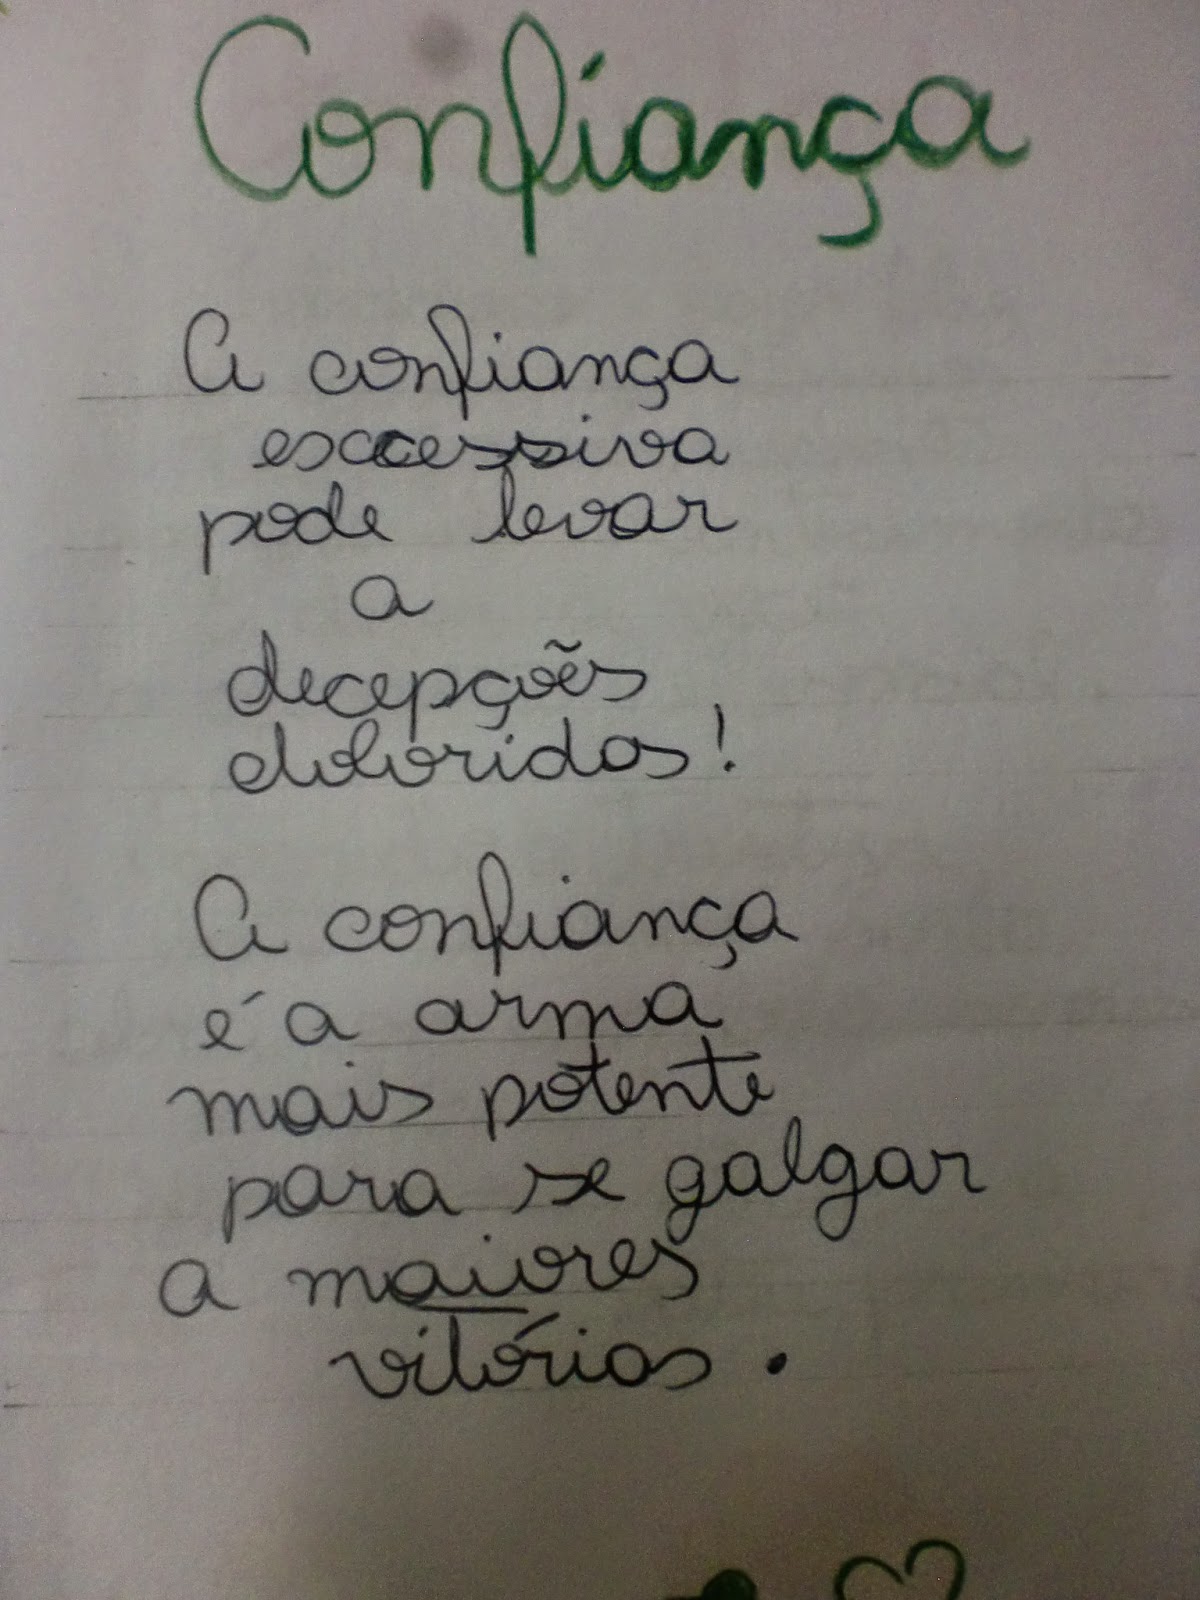 Confiança
A confiança
excessiva
pode levar
a
decepções
doloridas!
A confiança
é a arma
mais potente
para se galgar
a maiores
vitórias.